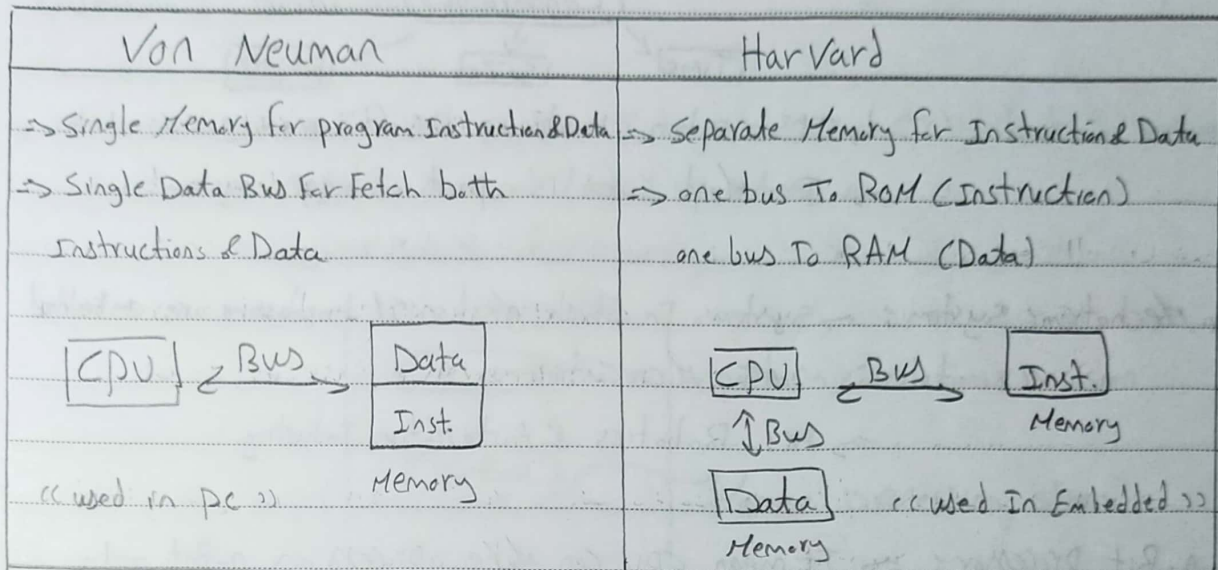 Von Neuman
=> Single Memory for program Instruction & Data
=> Single Data Bus For Fetch both
Instructions & Data
CPU
Bus
Data
Inst.
Memory
<< used in pc >>
Harvard
=> Separate Memory for Instruction & Data
=> one bus To ROM (Instruction)
one bus To RAM (Data)
CPU
Bus
Inst.
Memory
Bus
Data
Memory
<< used In Embedded >>